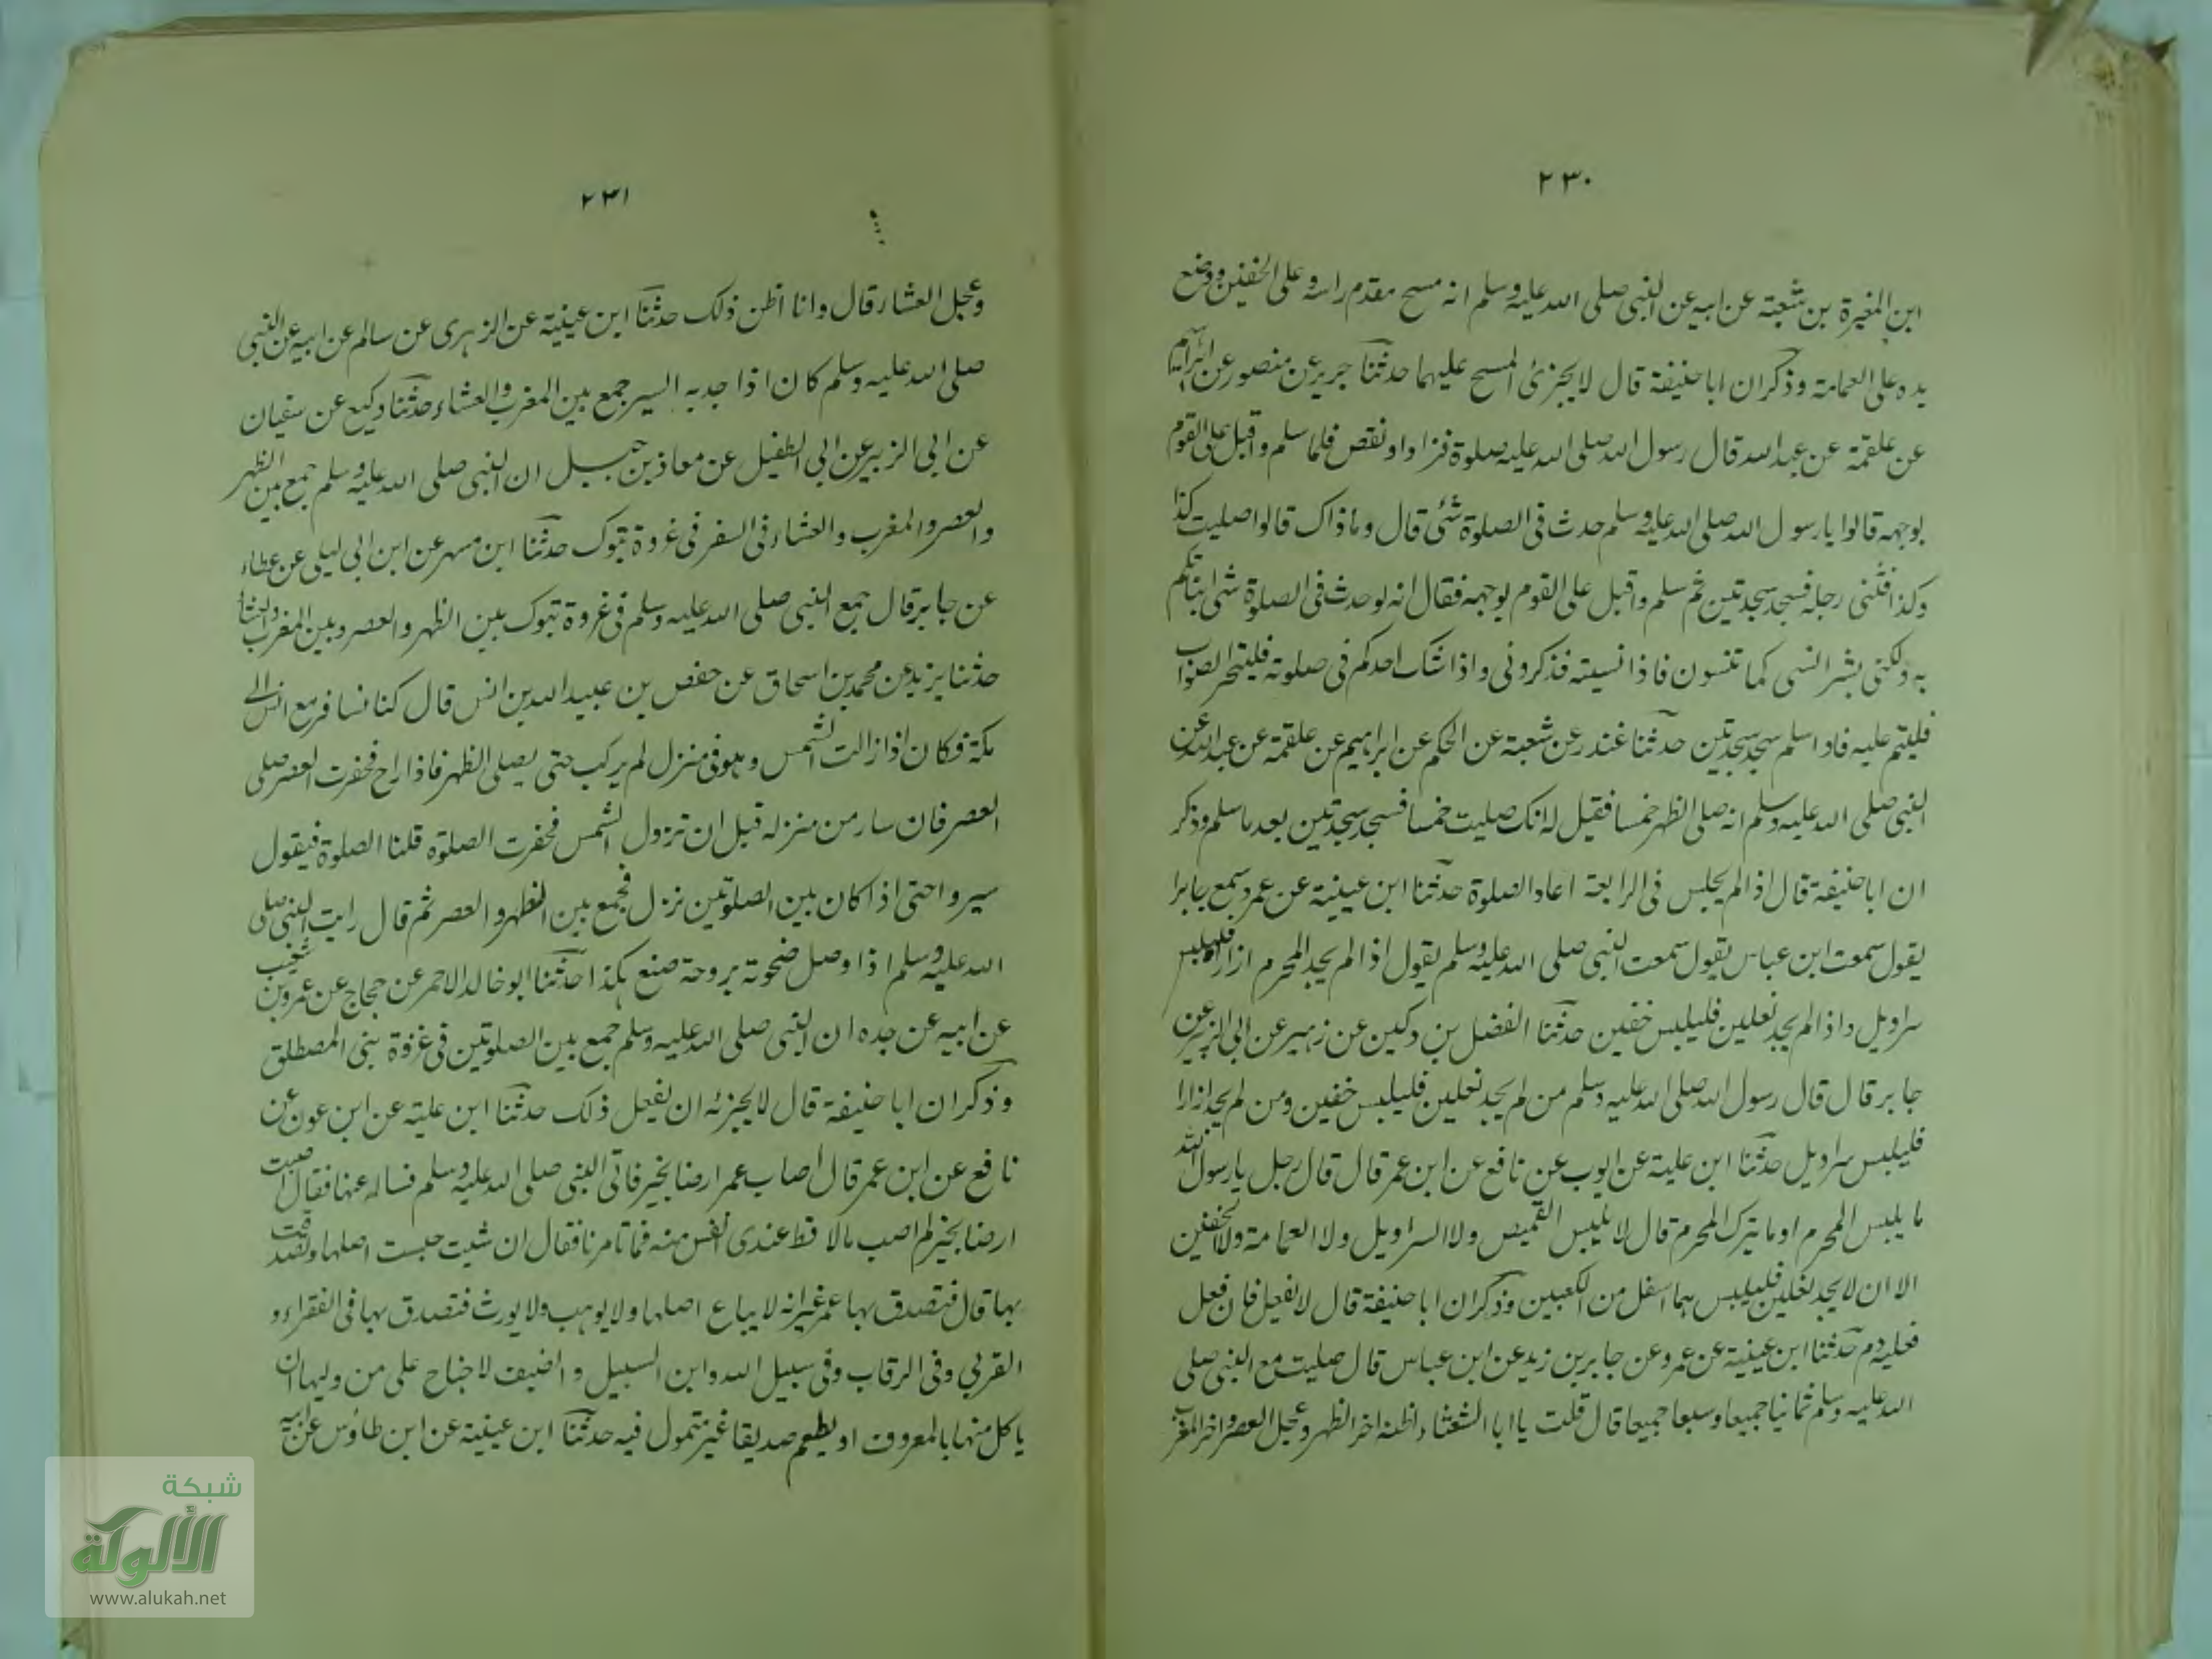 ٢٣٠
ابن المغيرة بن شعبة عن ابيه عن النبى صلى الله عليه وسلم انه مسح مقدم راسه وعلى الخفين ووضع
يده على العمامة وذكر ان ابا حنيفة قال لا يجزئ المسح عليهما حدثنا جرير عن منصور عن ابراهيم
عن علقمة عن عبد الله قال رسول الله صلى الله عليه صلوة فزاد او نقص فلما سلم واقبل على القوم
بوجهه قالوا يا رسول الله صلى الله عليه وسلم حدث فى الصلوة شئ قال وما ذاك قالوا صليت كذا
وكذا فثنى رجله فسجد سجدتين ثم سلم واقبل على القوم بوجهه فقال انه لو حدث فى الصلوة شئ انباتكم
به ولكنى بشر انسى كما تنسون فاذا نسيته فذكرونى واذا شك احدكم فى صلوته فليتحر الصواب
فليتم عليه فاذا سلم سجد سجدتين حدثنا غندر عن شعبة عن الحكم عن ابراهيم عن علقمة عن عبد الله عن
النبى صلى الله عليه وسلم انه صلى الظهر خمسا فقيل له انك صليت خمسا فسجد سجدتين بعد ما سلم وذكر
ان ابا حنيفة قال اذا لم يجلس فى الرابعة اعاد الصلوة حدثنا ابن عيينة عن عمرو سمع جابرا
يقول سمعت ابن عباس يقول سمعت النبى صلى الله عليه وسلم يقول اذا لم يجد المحرم ازارا فليلبس
سراويل واذا لم يجد نعلين فليلبس خفين حدثنا الفضل بن دكين عن زهير عن ابى الزبير عن
جابر قال قال رسول الله صلى الله عليه وسلم من لم يجد نعلين فليلبس خفين ومن لم يجد ازارا
فليلبس سراويل حدثنا ابن علية عن ايوب عن نافع عن ابن عمر قال قال رجل يا رسول الله
ما يلبس المحرم او ما يترك المحرم قال لا يلبس القميص ولا السراويل ولا العمامة ولا الخفين
الا ان لا يجد نعلين فليلبس بهما اسفل من الكعبين وذكر ان ابا حنيفة قال لا يفعل فان فعل
فعليه دم حدثنا ابن عيينة عن عمرو عن جابر بن زيد عن ابن عباس قال صليت مع النبى صلى
الله عليه وسلم ثمانيا جميعا وسبعا جميعا قال قلت يا ابا الشعثاء اظنه اخر الظهر وعجل العصر واخر المغرب
٢٣١
وعجل العشاء قال وانا اظن ذلك حدثنا ابن عيينة عن الزهرى عن سالم عن ابيه عن النبى
صلى الله عليه وسلم كان اذا جد به السير جمع بين المغرب والعشاء حدثنا وكيع عن سفيان
عن ابى الزبير عن ابى الطفيل عن معاذ بن جبل ان النبى صلى الله عليه وسلم جمع بين الظهر
والعصر والمغرب والعشاء فى السفر فى غزوة تبوك حدثنا ابن مسهر عن ابن ابى ليلى عن عطاء
عن جابر قال جمع النبى صلى الله عليه وسلم فى غزوة تبوك بين الظهر والعصر وبين المغرب والعشاء
حدثنا يزيد عن محمد بن اسحاق عن حفص بن عبيد الله بن انس قال كنا نسافر مع انس الى
مكة فكان اذا زالت الشمس وهو فى منزل لم يركب حتى يصلى الظهر فاذا راح فحضرت العصر صلى
العصر فان سار من منزله قبل ان تزول الشمس فحضرت الصلوة قلنا الصلوة فيقول
سيروا حتى اذا كان بين الصلوتين نزل فجمع بين الظهر والعصر ثم قال رايت النبى صلى
الله عليه وسلم اذا وصل ضحوته بروحة صنع هكذا حدثنا ابو خالد الاحمر عن حجاج عن عمرو بن شعيب
عن ابيه عن جده ان النبى صلى الله عليه وسلم جمع بين الصلوتين فى غزوة بنى المصطلق
وذكر ان ابا حنيفة قال لا يجزئه ان يفعل ذلك حدثنا ابن علية عن ابن عون عن
نافع عن ابن عمر قال اصاب عمر ارضا بخيبر فاتى النبى صلى الله عليه وسلم فساله عنها فقال اصبت
ارضا بخيبر لم اصب مالا قط عندى انفس منه فما تامرنا فقال ان شئت حبست اصلها وتصدقت
بها قال فتصدق بها عمر غير انه لا يباع اصلها ولا يوهب ولا يورث فتصدق بها فى الفقراء و
القربى وفى الرقاب وفى سبيل الله وابن السبيل والضيف لا جناح على من وليها ان
ياكل منها بالمعروف او يطعم صديقا غير متمول فيه حدثنا ابن عيينة عن ابن طاؤس عن ابيه
شبكة
الألوكة
www.alukah.net